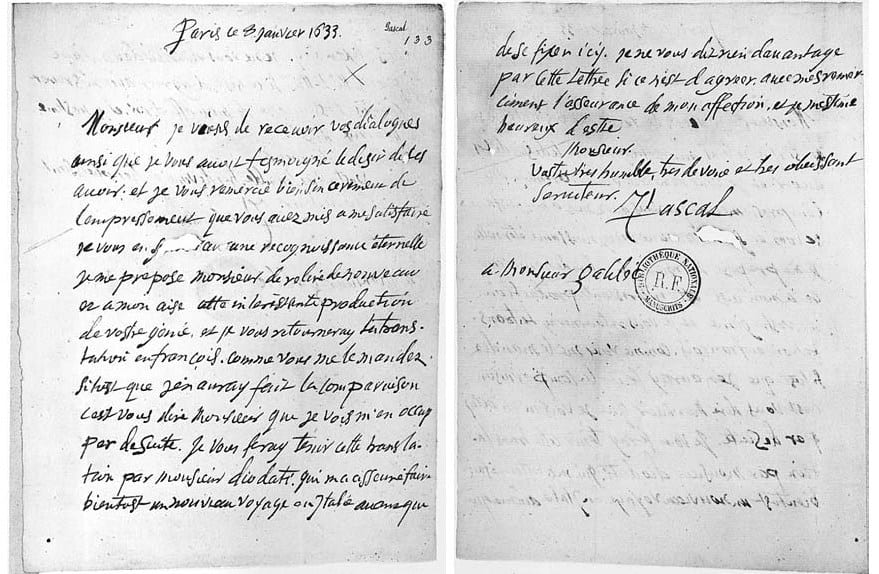 Paris ce 8 janvier 1633.
Pascal
133
Monsieur je viens de recevoir vos dialogues
ainsi que je vous avoit tesmoigné le desir de les
avoir. et je vous remercie bien sincerement de
l'empressement que vous avez mis a me satisfaire
je vous en une recognoissance éternelle
je me propose monsieur de relire de nouveau
et a mon aise cette interessante production
de vostre génie, et je vous retourneray la trans-
lation en françois. comme vous me le mandez
sitost que j'en auray fait la comparaison
c'est vous dire Monsieur que je vois m'en occup
par de suite. Je vous feray tenir cette transla-
tion par monsieur diodati, qui m'a asseuré faire
bientost un nouveau voyage en Italie avant que
de se fixer icy. je ne vous diz rien davantage
par cette lettre si ce n'est d'agreer avec mes remer-
ciment l'asseurance de mon affection. et je m'estime
heureux d'estre
Monsieur.
Vostre tres humble, tres devoué et tres obeissant
serviteur.
Pascal
a Monsieur galilée
BIBLIOTHÈQUE NATIONALE
R.F.
MANUSCRITS